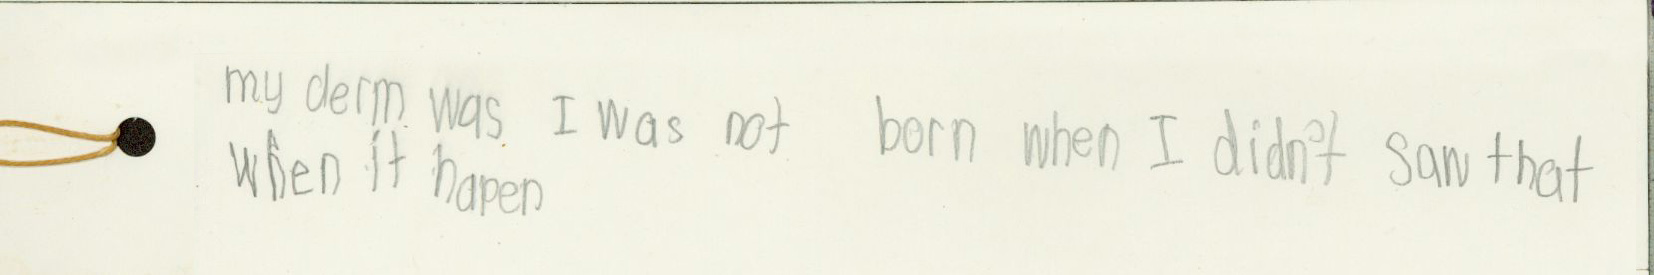 my derm was I was not born when I didn't saw that
when it hapen